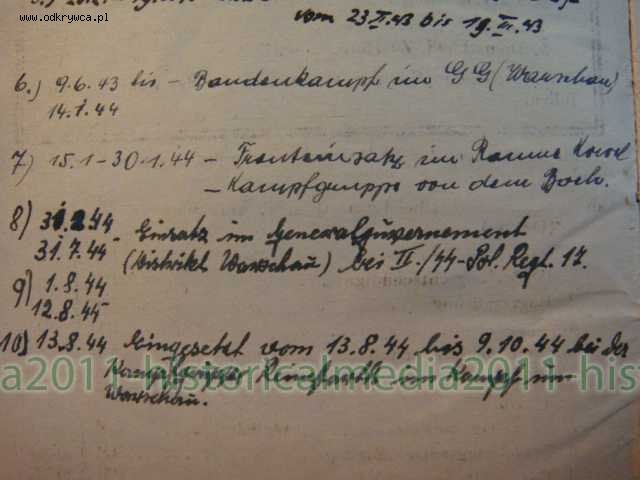 www.odkrywca.pl
vom 23.II.43 bis 19.III.43
6.) 9.6.43 bis - Bandenkampf im GG (Warschau)
14.1.44
7) 15.1-30.1.44 - Fronteinsatz im Raume Kowel
- Kampfgruppe von dem Bach.
8) 31.2.44 - Einsatz im Generalgouvernement
31.7.44 (Distrikt Warschau) bei II./SS-Pol. Regt. 17.
9) 1.8.44
12.8.44
10) 13.8.44 Eingesetzt vom 13.8.44 bis 9.10.44 bei der
Kampfgruppe Reinefarth im Kampf um
Warschau.
a2011-historicalmedia2011-his